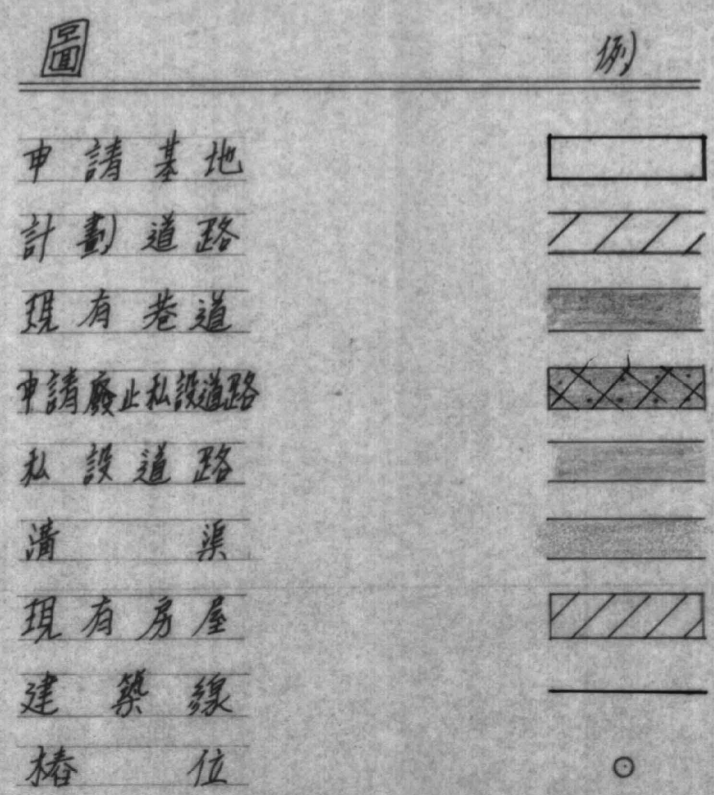 圖例
申請基地
計劃道路
現有巷道
申請廢止私設道路
私設道路
溝渠
現有房屋
建築線
樁位